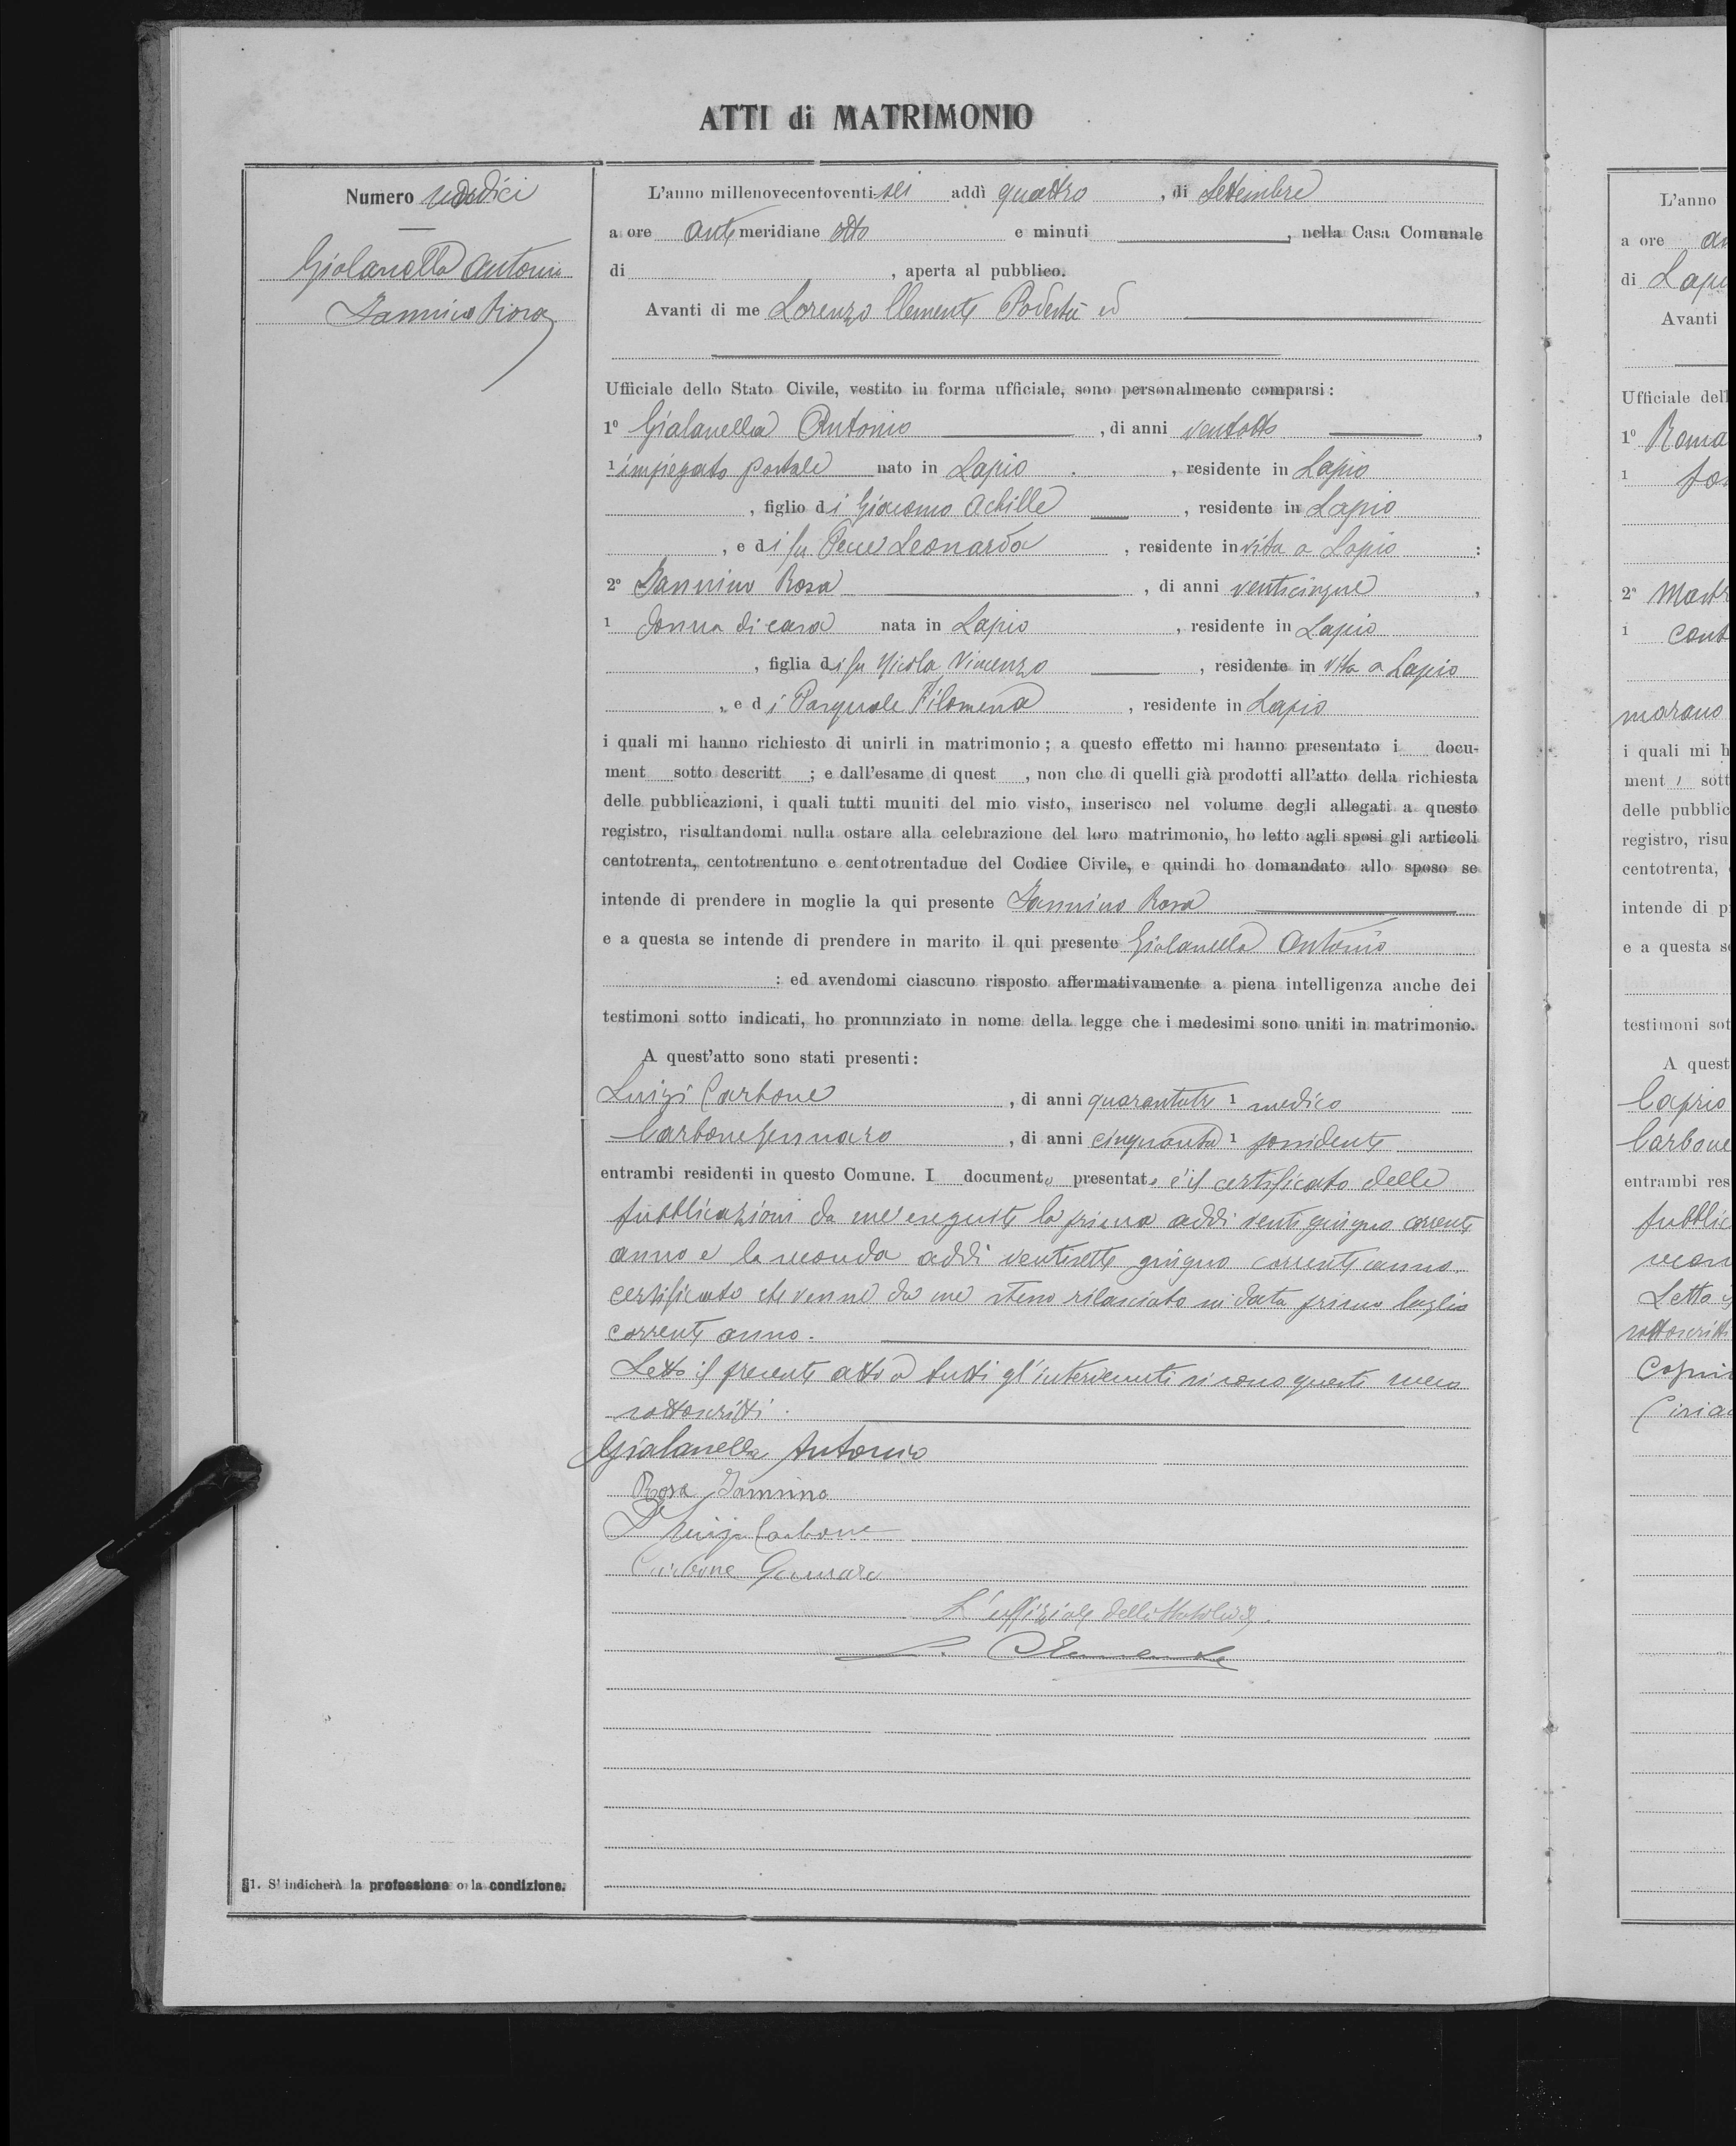 ATTI di MATRIMONIO
Numero undici
Gialanella Antonio
Iannino Rosa
L'anno millenovecentoventi-sei addì quattro, di Settembre
a ore antimeridiane otto e minuti , nella Casa Comunale
di , aperta al pubblico.
Avanti di me Lorenzo Clemente Podestà ed
Ufficiale dello Stato Civile, vestito in forma ufficiale, sono personalmente comparsi:
1° Gialanella Antonio , di anni ventotto ,
1 impiegato postale nato in Lapio , residente in Lapio
, figlio di Giacomo Achille , residente in Lapio
, e di fu Leonarda , residente in vita a Lapio :
2° Iannino Rosa , di anni venticinque ,
1 donna di casa nata in Lapio , residente in Lapio
, figlia di fu Nicola Vincenzo , residente in vita a Lapio
, e di Pasquale Filomena , residente in Lapio
i quali mi hanno richiesto di unirli in matrimonio; a questo effetto mi hanno presentato i docu-
ment sotto descritt ; e dall'esame di quest , non che di quelli già prodotti all'atto della richiesta
delle pubblicazioni, i quali tutti muniti del mio visto, inserisco nel volume degli allegati a questo
registro, risultandomi nulla ostare alla celebrazione del loro matrimonio, ho letto agli sposi gli articoli
centotrenta, centotrentuno e centotrentadue del Codice Civile, e quindi ho domandato allo sposo se
intende di prendere in moglie la qui presente Iannino Rosa
e a questa se intende di prendere in marito il qui presente Gialanella Antonio
: ed avendomi ciascuno risposto affermativamente a piena intelligenza anche dei
testimoni sotto indicati, ho pronunziato in nome della legge che i medesimi sono uniti in matrimonio.
A quest'atto sono stati presenti:
Luigi Carbone , di anni quarantatre 1 medico
Carbone Gennaro , di anni cinquanta 1 possidente
entrambi residenti in questo Comune. I documento presentato è il certificato delle
pubblicazioni da me eseguite la prima addì venti giugno corrente
anno e la seconda addì ventisette giugno corrente anno,
certificato che venne da me stesso rilasciato in data primo luglio
corrente anno.
Letto il presente atto a tutti gl'intervenuti si sono questi meco
sottoscritti.
Gialanella Antonio
Rosa Iannino
Dr Luigi Carbone
Carbone Gennaro
L'uffiziale dello Stato Civile
L. Clemente
1. S'indicherà la professione o la condizione.
L'anno
a ore an
di Lapi
Avanti
Ufficiale dell
1° Roma
1
2° Mastr
1 cont
marano
i quali mi h
ment i sott
delle pubblic
registro, risu
centotrenta,
intende di p
e a questa s
testimoni sot
A quest
Caprio
Carbone
entrambi res
pubblic
secon
Letto
sottoscritti
Capri
Ciria